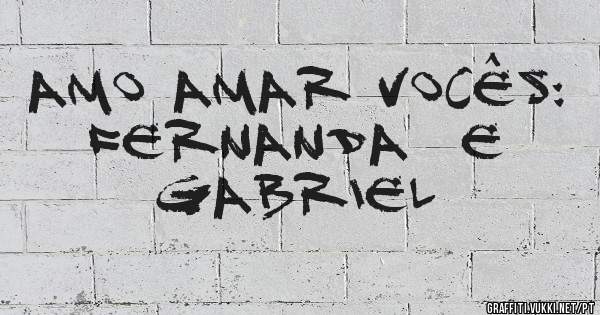 AMO AMAR VOCÊS:
FERNANDA E
GABRIEL
GRAFFITI.VUKKI.NET/PT